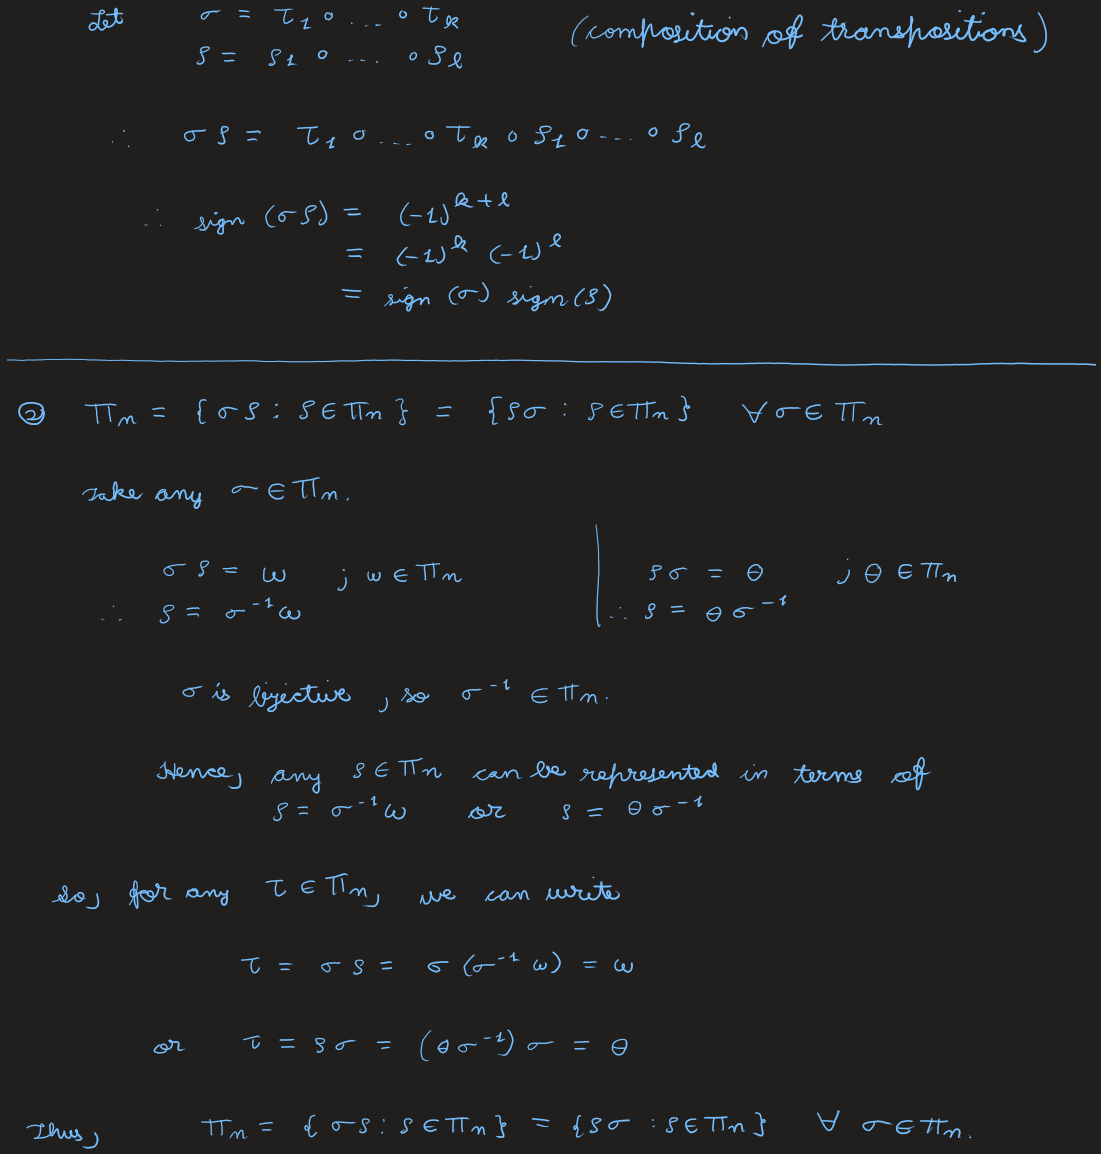 Let σ = τ₁ ∘ ... ∘ τₖ (composition of transpositions)
ρ = ρ₁ ∘ ... ∘ ρₗ
∴ σρ = τ₁ ∘ ... ∘ τₖ ∘ ρ₁ ∘ ... ∘ ρₗ
∴ sign (σρ) = (-1)ᵏ⁺ˡ
= (-1)ᵏ (-1)ˡ
= sign (σ) sign (ρ)
② Πₙ = {σρ : ρ ∈ Πₙ} = {ρσ : ρ ∈ Πₙ} ∀ σ ∈ Πₙ
Take any σ ∈ Πₙ.
σρ = ω ; ω ∈ Πₙ | ρσ = θ ; θ ∈ Πₙ
∴ ρ = σ⁻¹ω | ∴ ρ = θσ⁻¹
σ is bijective, so σ⁻¹ ∈ Πₙ.
Hence, any ρ ∈ Πₙ can be represented in terms of
ρ = σ⁻¹ω or ρ = θσ⁻¹
So, for any τ ∈ Πₙ, we can write
τ = σρ = σ(σ⁻¹ω) = ω
or τ = ρσ = (θσ⁻¹)σ = θ
Thus, Πₙ = {σρ : ρ ∈ Πₙ} = {ρσ : ρ ∈ Πₙ} ∀ σ ∈ Πₙ.